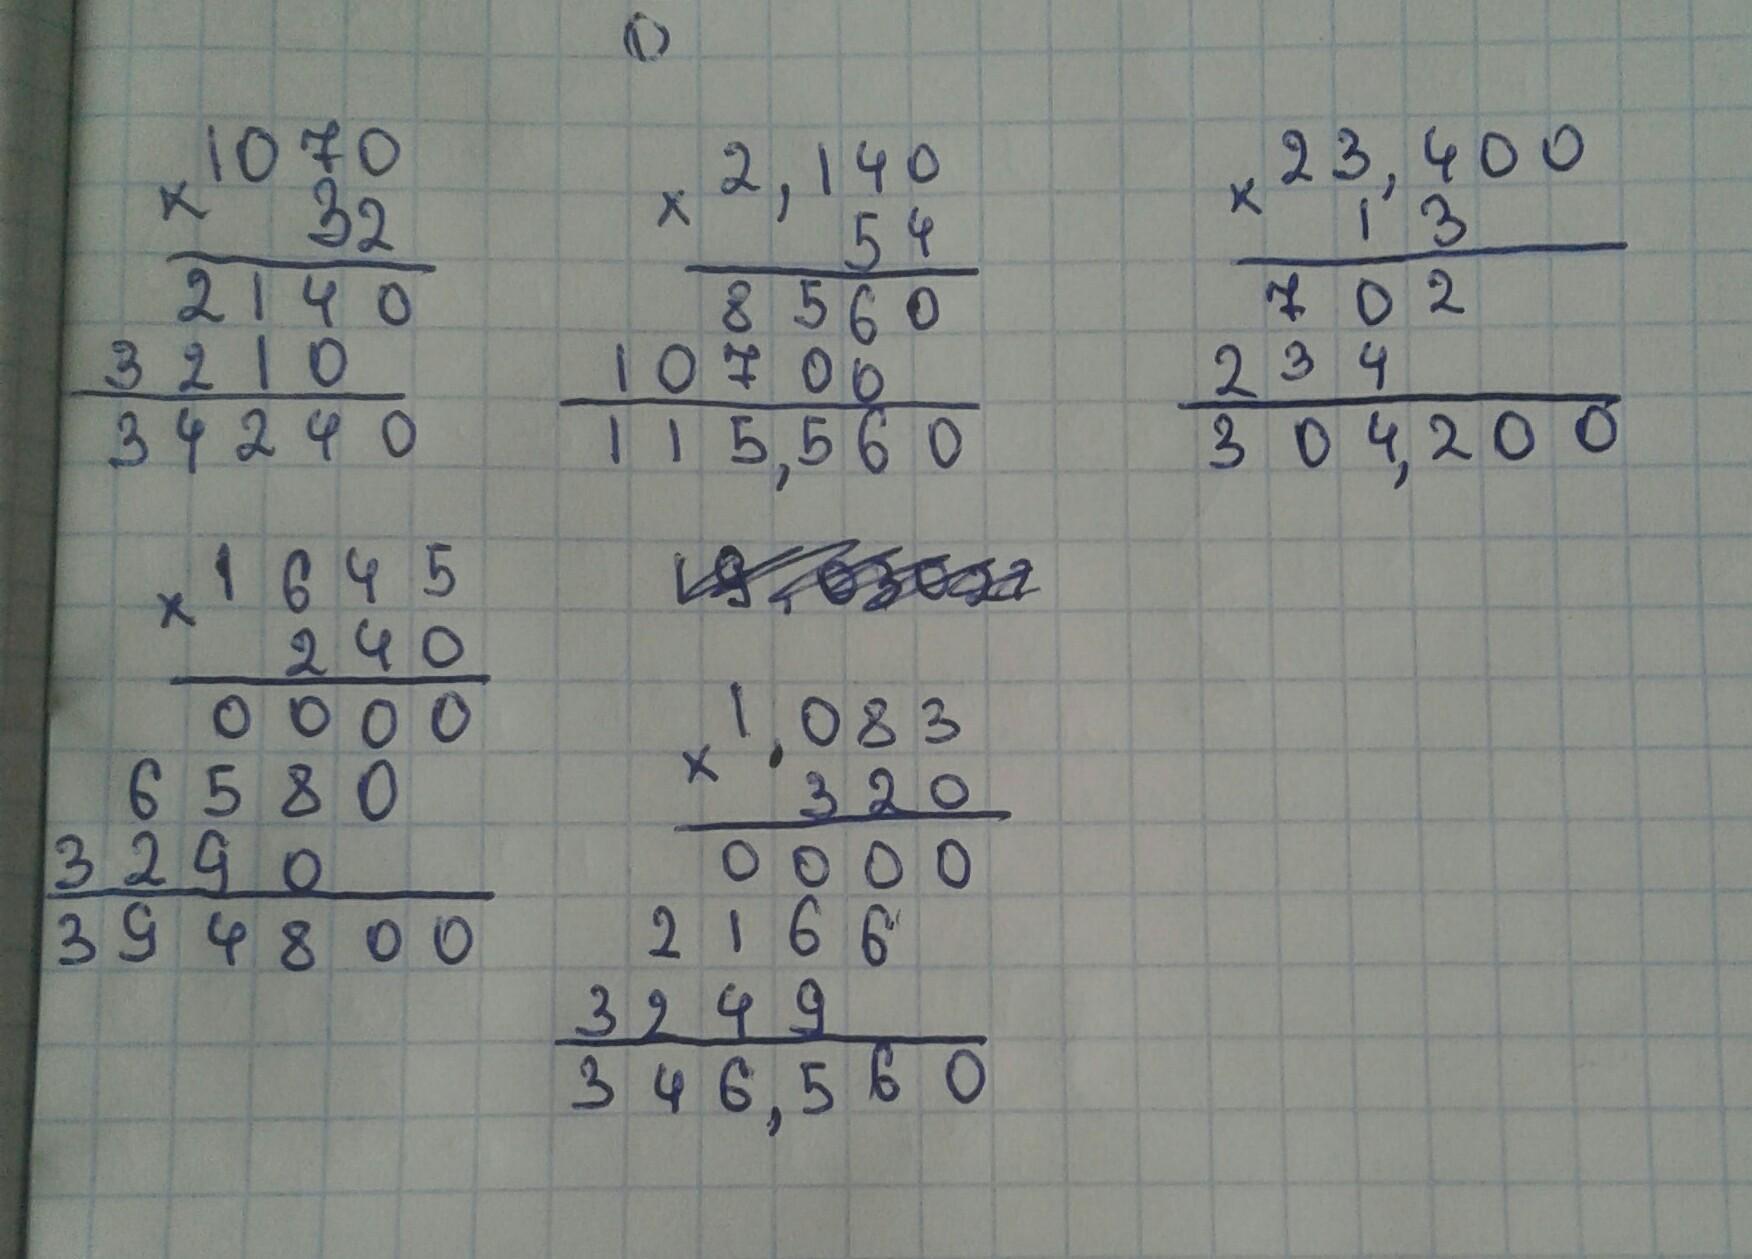 0
1070
× 32
2140
3210
34240
2,140
× 54
8560
10700
115,560
23,400
× 13
702
234
304,200
1645
× 240
0000
6580
3290
394800
1.083
× 320
0000
2166
3249
346,560